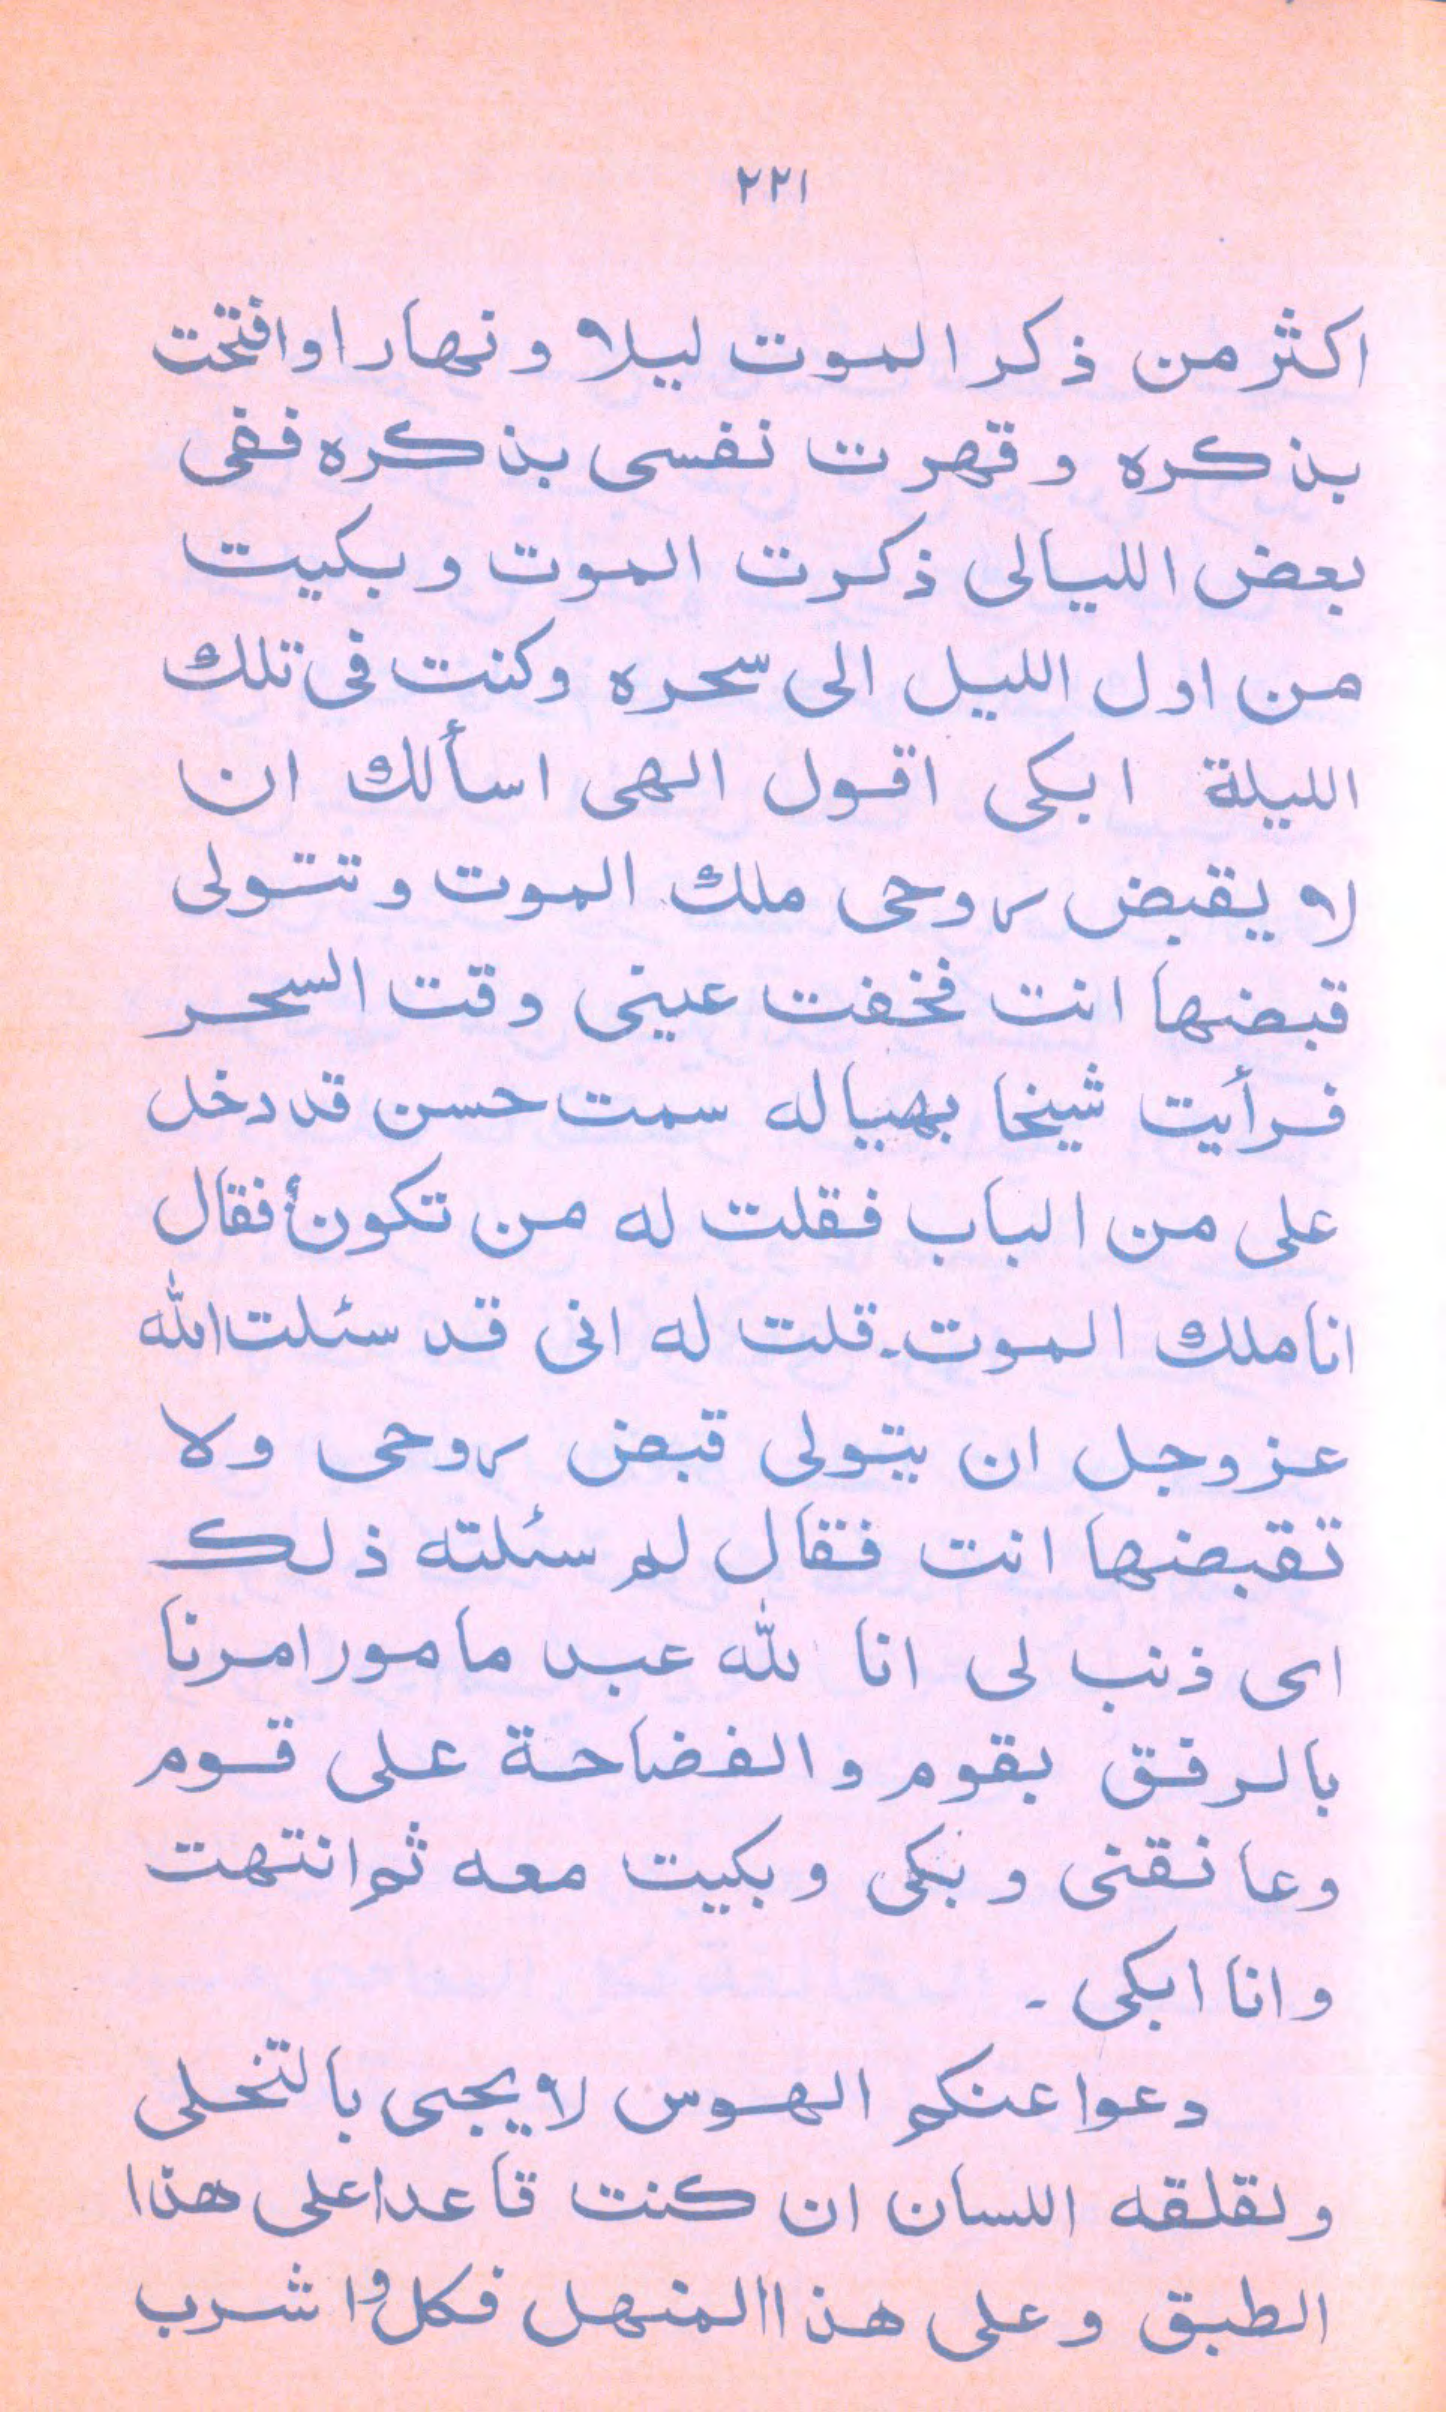 ٢٢١
اكثر من ذكر الموت ليلا و نهارا وافتحت
بذكره و قهرت نفسى بذكره ففى
بعض الليالى ذكرت الموت و بكيت
من اول الليل الى سحره وكنت فى تلك
الليلة ابكى اقول الهى اسألك ان
لا يقبض روحى ملك الموت و تتولى
قبضها انت فخفت عينى وقت السحر
فرأيت شيخا بهيا له سمت حسن قد دخل
على من الباب فقلت له من تكون أفقال
انا ملك الموت۔ قلت له انى قد سئلت الله
عز وجل ان يتولى قبض روحى ولا
تقبضها انت فقال لم سئلته ذلك
اى ذنب لى انا لله عبد مامور امرنا
بالرفق بقوم و الفضاحة على قوم
وعانقنى و بكى و بكيت معه ثم انتهت
وانا ابكى ۔
دعوا عنكم الهوس لا يجيى بالتخلى
ولقلقه اللسان ان كنت قاعدا على هذا
الطبق و على هذا المنهل فكل واشرب